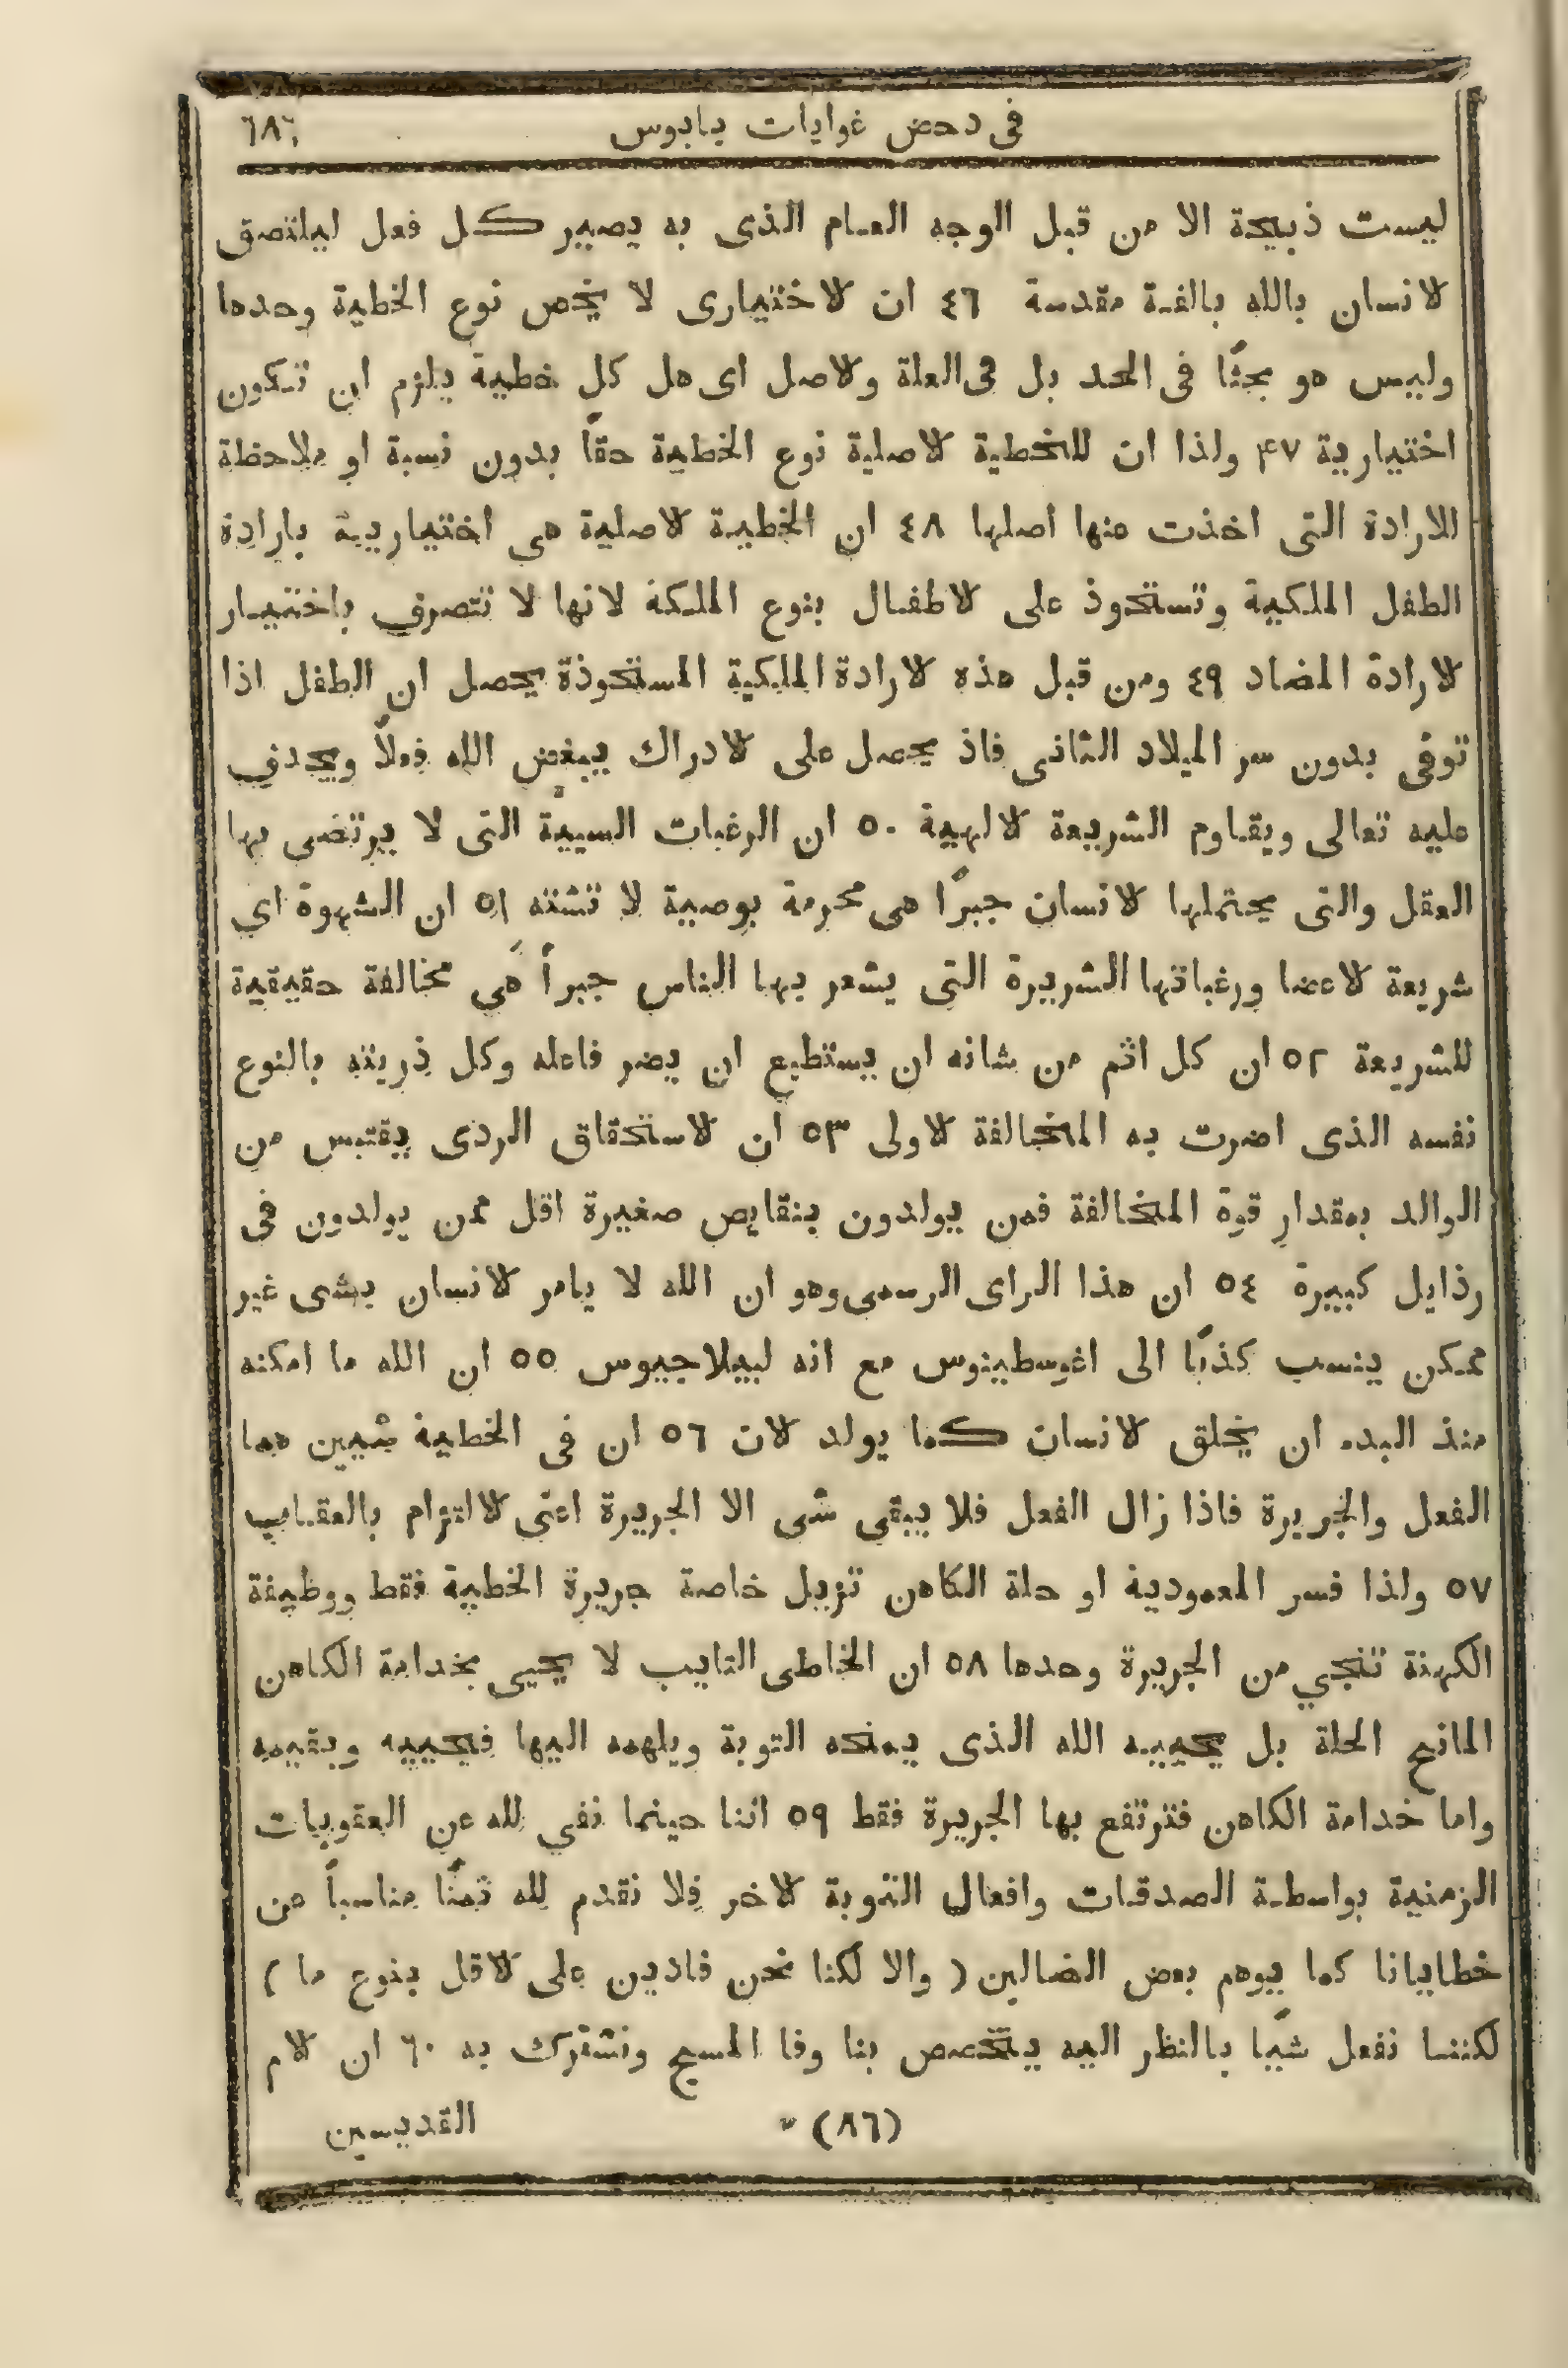 في دحض غوايات بابوس ٦٨١
ليست ذبيحة الا من قبل الوجه العام الذى به يصير كل فعل ليلتصق
لانسان بالله بالفة مقدسة ٤٦ ان لاختيارى لا يخص نوع الخطية وحدها
وليس هو بحثًا فى الحد بل فى العلة ولاصل اى هل كل خطية يلزم ان تكون
اختيارية ٤٧ ولذا ان للخطية لاصلية نوع الخطية حقاً بدون نسبة او ملاحظة
للارادة التى اخذت منها اصلها ٤٨ ان الخطية لاصلية هى اختيارية بارادة
الطفل الملكية وتستحوذ على لاطفال بنوع الملكة لانها لا تتصرف باختيار
لارادة المضاد ٤٩ ومن قبل هذه لارادة الملكية المستحوذة يحصل ان الطفل اذا
توفى بدون سر الميلاد الثانى فاذ يحصل على لادراك يبغض الله فعلاً ويجدف
عليه تعالى ويقاوم الشريعة لالهية ٥٠ ان الرغبات السيية التى لا يرتضى بها
العقل والتى يحتملها لانسان جبرًا هى محرمة بوصية لا تشته ٥١ ان الشهوة اي
شريعة لاعضا ورغباتها الشريرة التى يشعر بها الناس جبراً هى مخالفة حقيقية
للشريعة ٥٢ ان كل اثم من شانه ان يستطيع ان يضر فاعله وكل ذريته بالنوع
نفسه الذى اضرت به المخالفة لاولى ٥٣ ان لاستحقاق الردى يقتبس من
الوالد بمقدار قوة المخالفة فمن يولدون بنقايص صغيرة اقل ممن يولدون فى
رذايل كبيرة ٥٤ ان هذا الراى الرسمى وهو ان الله لا يامر لانسان بشى غير
ممكن ينسب كذبًا الى اغوسطينوس مع انه لبيلاجيوس ٥٥ ان الله ما امكنه
منذ البدء ان يخلق لانسان كما يولد لان ٥٦ ان فى الخطية شيين هما
الفعل والجريرة فاذا زال الفعل فلا يبقى شى الا الجريرة اعنى لالتزام بالعقاب
٥٧ ولذا فسر المعمودية او حلة الكاهن تزيل خاصة جريرة الخطية فقط ووظيفة
الكهنة تنجي من الجريرة وحدها ٥٨ ان الخاطى التايب لا يحيى بخدامة الكاهن
المانح الحلة بل يحييه الله الذى يمنحه التوبة ويلهمه اليها فيحييه ويقيمه
واما خدامة الكاهن فترتفع بها الجريرة فقط ٥٩ اننا حينما نفي لله عن العقوبات
الزمنية بواسطة الصدقات وافعال التوبة لاخر فلا نقدم لله ثمنًا مناسباً عن
خطايانا كما يوهم بعض الضالين ( والا لكنا نحن فادين على لاقل بنوع ما )
لكننا نفعل شيًا بالنظر اليه يتخصص بنا وفا المسيح ونشترك به ٦٠ ان لام
(٨٦) القديسين